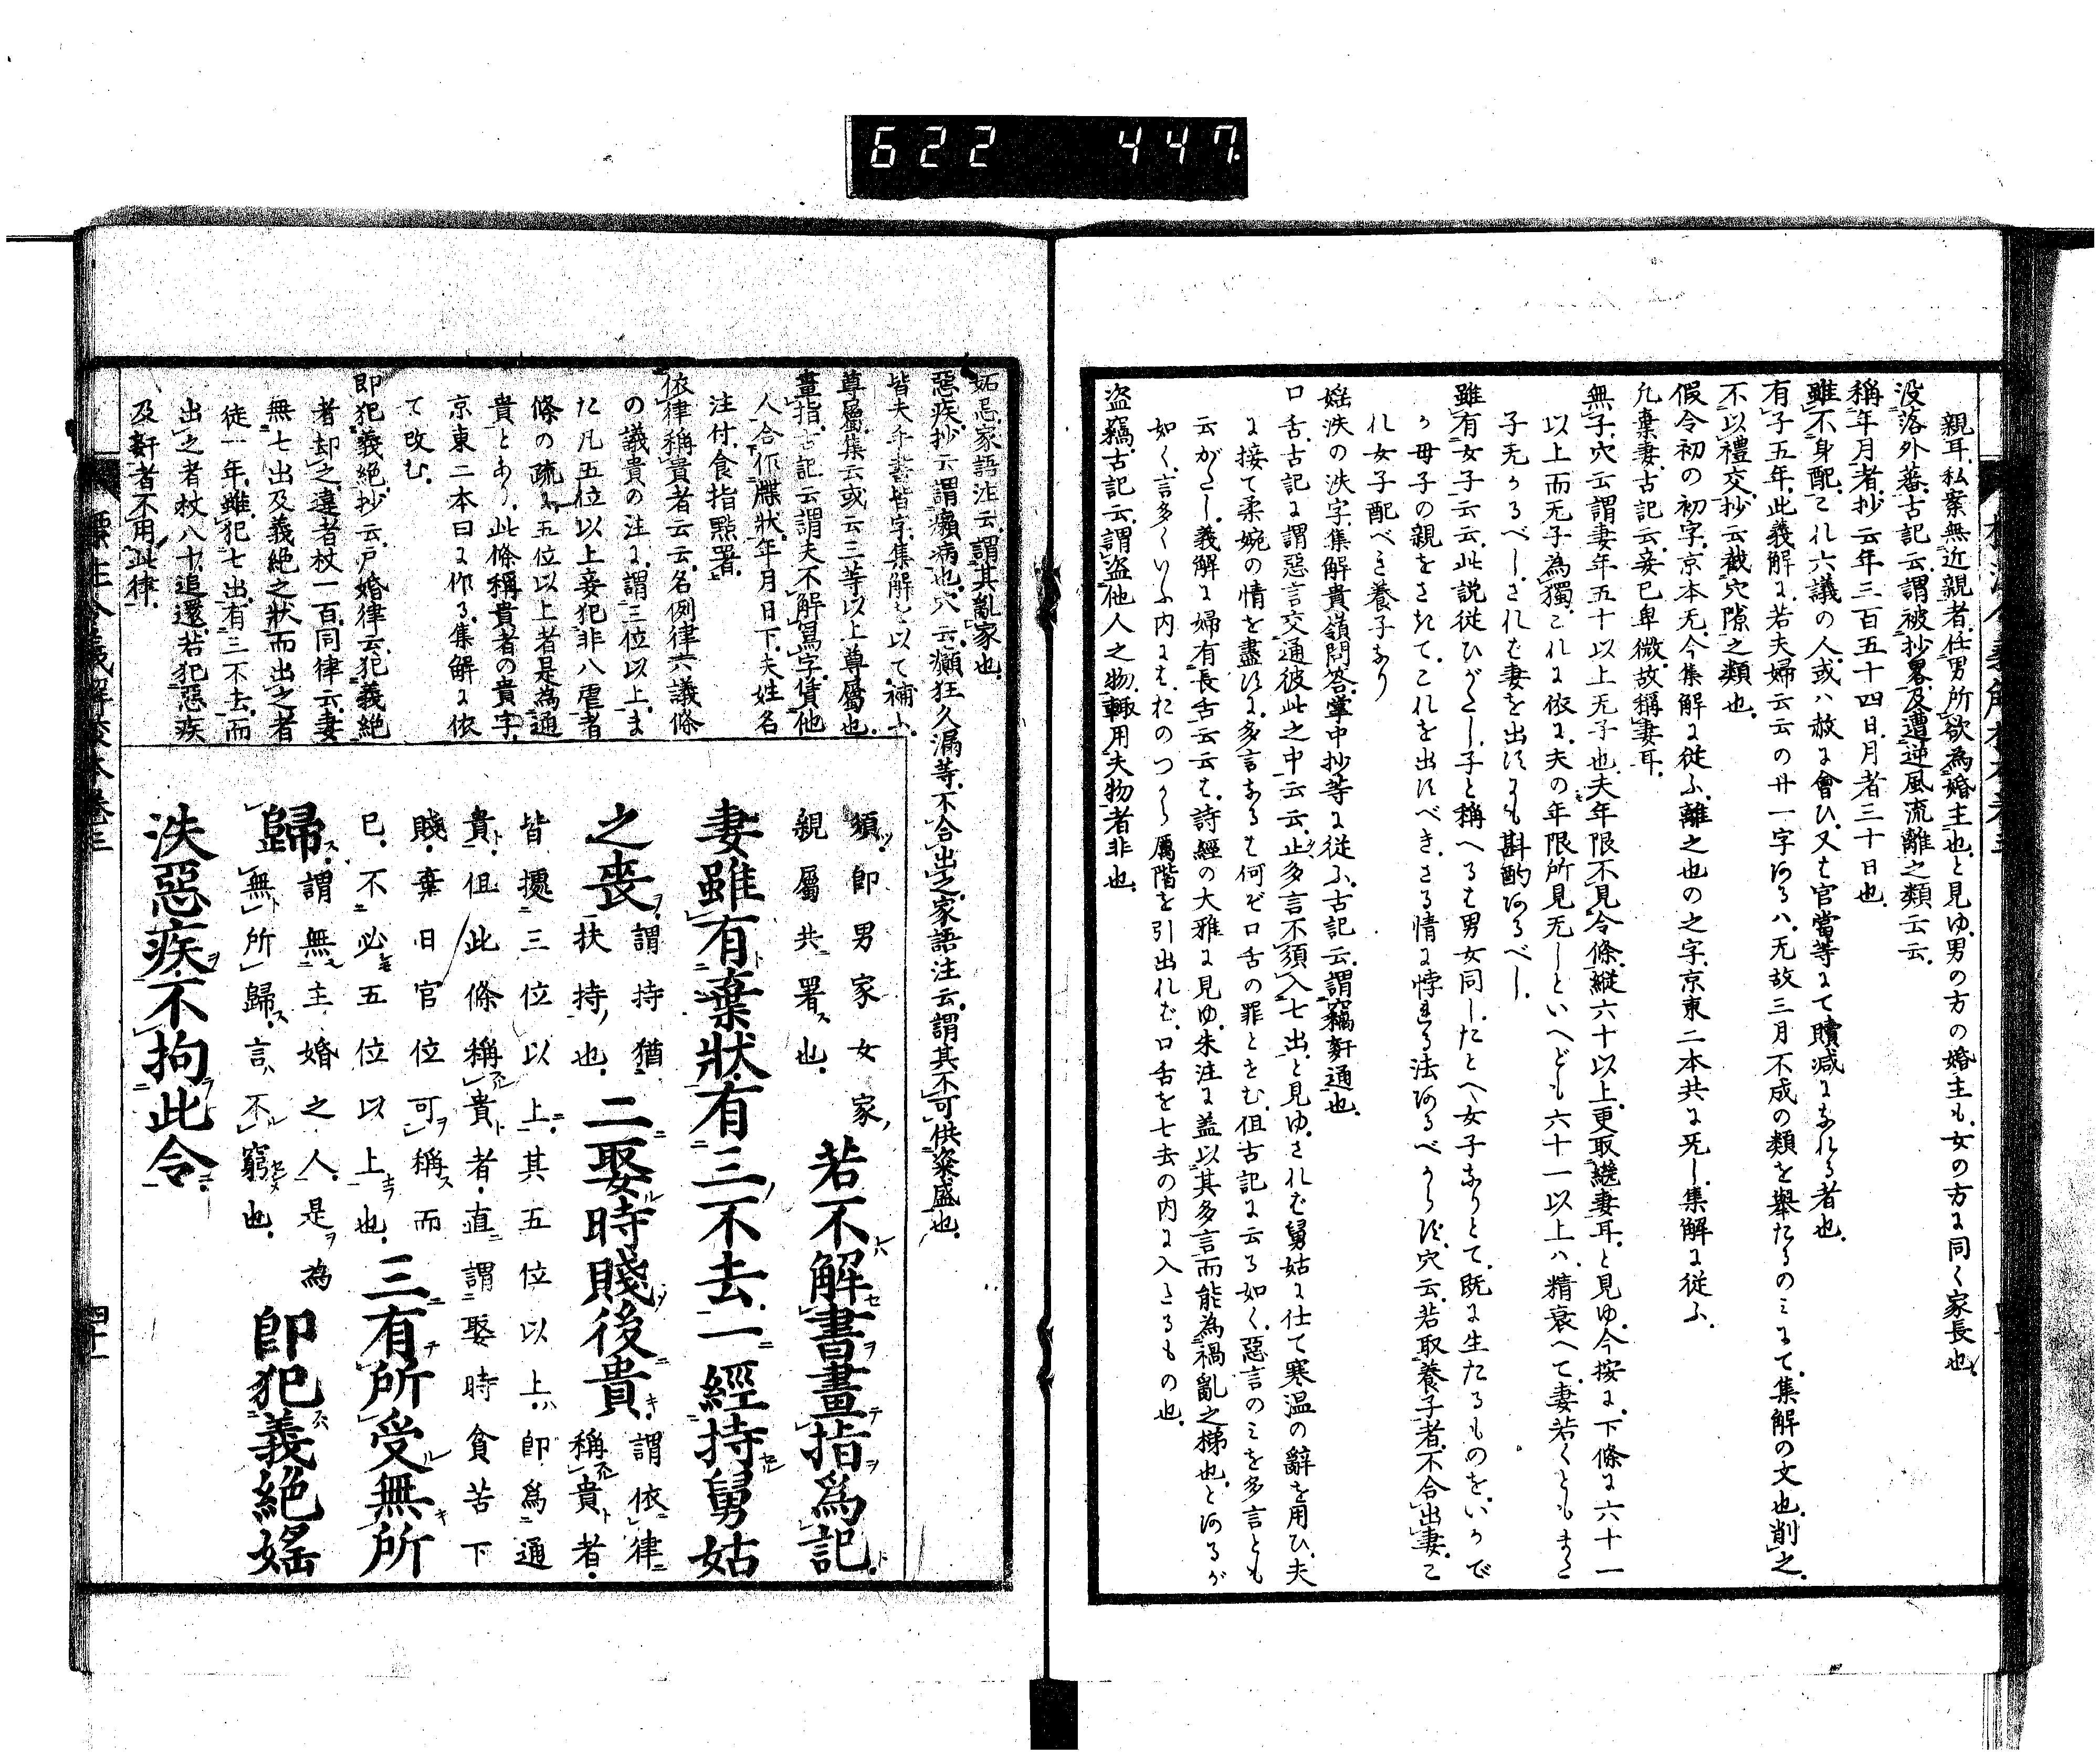 622 447
親耳、私案無近親者、任男所欲為婚主也、と見ゆ、男の方の婚主も、女の方に同く家長也、
没落外蕃、古記云、謂被抄畧、及遭逆風流離之類云云、
稱年月者、抄云、年三百五十四日、月者三十日也、
雖不身配、これ六議の人、或ハ赦に會ひ、又は官當等にて贖減になれる者也、
有子五年、此義解に、若夫婦云云の廿一字あるハ、无故三月不成の類を擧たるのミにて、集解の文也、削之、
不以禮交、抄云、截穴隙之類也、
假令初の初字、京本无、今集解に従ふ、離之也の之字、京東二本共に旡し、集解に従ふ、
凡棄妻、古記云、妾已卑微、故稱妻耳、
無子、穴云、謂妻年五十以上无子也、夫年限不見令條、縱六十以上、更取繼妻耳、と見ゆ、今按に、下條に六十一
以上而无子為獨、これに依に、夫の年限所見无しといへども、六十一以上ハ精衰へて、妻若くともまた
子无かるべし、されば妻を出すにも斟酌あるべし、
雖有女子云云、此説従ひがたし、子と稱へるは男女同し、たとへ女子なりとて、既に生たるものを、いかで
か母子の親をさきて、これを出すべき、さる情に悖れる法あるべからず、穴云、若取養子者、不合出妻、こ
れ女子配べき養子なり
婬泆の泆字、集解貴嶺問答、掌中抄等に従ふ、古記云、謂竊姧通也、
口舌、古記に謂惡言交通彼此之中云云、止多言不須入七出、と見ゆ、されば舅姑に仕て寒温の辭を用ひ、夫
に接て柔婉の情を盡すに、多言なるは何ぞ口舌の罪とせむ、但古記に云る如く、惡言のミを多言とも
云がたし、義解に婦有長舌云云は、詩經の大雅に見ゆ、朱注に蓋以其多言而能為禍亂之梯也、とあるが
如く、言多くいふ内には、おのつから厲階を引出れば、口舌を七去の内に入たるもの也、
盜竊、古記云、謂盜他人之物、輙用夫物者非也、
妬忌、家語注云、謂其亂家也、
惡疾、抄云、謂癩病也、穴云、癲狂久漏等、不合出之、家語注云、謂其不可供粢盛也、
皆夫手書、皆字、集解を以て補ふ、
尊屬、集云、或云三等以上尊屬也、
畫指、古記云、謂夫不解寫字、賃他
人合作牒状、年月日下、夫姓名
注付、食指點署、
依律稱貴者云云、名例律六議條
の議貴の注に、謂三位以上、ま
た凡五位以上妾犯非八虐者
條の疏に、五位以上者是為通
貴とあり、此條稱貴者の貴字、
京東二本曰に作る、集解に依
て改む、
即犯義絶、抄云、戸婚律云、犯義絶
者却之、違者杖一百、同律云、妻
無七出及義絶之狀、而出之者
徒一年、雖犯七出、有三不去、而
出之者杖八十、追還、若犯惡疾
及姧者、不用此律、
須即男家女家
親屬共署也、
若不解書畫指爲記、
妻雖有棄狀、有三不去、一經持舅姑
之喪、謂持猶
扶持也、
二娶時賤後貴、謂依律
稱貴者、
皆據三位以上、其五位以上、即爲通
貴、但此條稱貴者、直謂娶時貧苦下
賤、棄日官位可稱而
已、不必五位以上也、
三有所受無所
歸、謂無主婚之人、是為
無所歸、言不窮也、
即犯義絶婬
泆惡疾、不拘此令、
標注令義解校本卷三
四十一